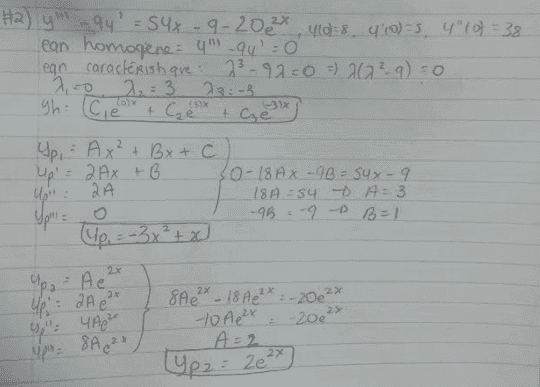 #2) y''' - 9y' = 54x - 9 - 20e^2x , y(0)=8, y'(0)=5, y''(0)=38
eqn homogène = y''' - 9y' = 0
eqn caractéristique : λ³ - 9λ = 0 => λ(λ² - 9) = 0
λ₁ = 0 λ₂ = 3 λ₃ = -3
yh : C₁e^(0)x + C₂e^(3)x + C₃e^(-3)x
yp₁ = Ax² + Bx + C
yp' = 2Ax + B
yp'' = 2A
yp''' = 0
0 - 18Ax - 9B = 54x - 9
18A = 54 → A = 3
-9B = -9 → B = 1
yp₁ = -3x² + x
yp₂ = Ae^2x
yp' = 2Ae^2x
yp'' = 4Ae^2x
yp''' = 8Ae^2x
8Ae^2x - 18Ae^2x = -20e^2x
-10Ae^2x = -20e^2x
A = 2
yp₂ = 2e^2x